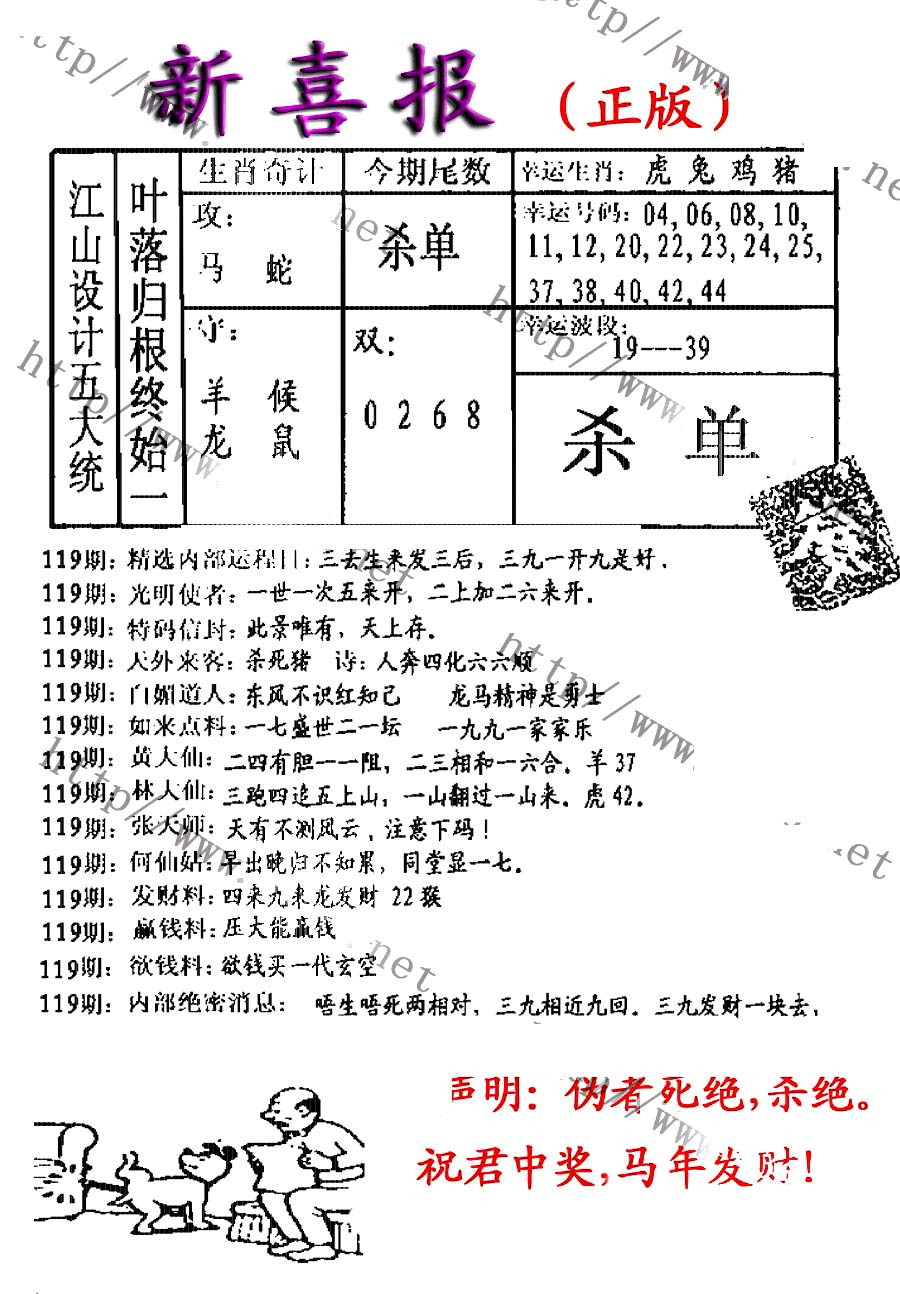 新喜报（正版）
江山设计五大统
叶落归根终始一
生肖奇计
攻：
马 蛇
守：
羊 候
龙 鼠
今期尾数
杀单
双：
0 2 6 8
幸运生肖：虎 兔 鸡 猪
幸运号码：04,06,08,10,
11,12,20,22,23,24,25,
37,38,40,42,44
幸运波段：
19---39
杀 单
119期：精选内部运程日：三去生来发三后，三九一开九是好．
119期：光明使者：一世一次五来开，二上加二六来开。
119期：特码信封：此景唯有，天上存。
119期：天外来客：杀死猪 诗：人奔四化六六顺
119期：白媚道人：东风不识红知己 龙马精神是勇士
119期：如来点料：一七盛世二一坛 一九九一家家乐
119期：黄大仙：二四有胆一一阻，二三相和一六合．羊37
119期：林大仙：三跑四追五上山，一山翻过一山来。虎42．
119期：张天师：天有不测风云，注意下码！
119期：何仙姑：早出晚归不知累，同堂显一七。
119期：发财料：四来九来龙发财 22猴
119期：赢钱料：压大能赢钱
119期：欲钱料：欲钱买一代玄空
119期：内部绝密消息： 唔生唔死两相对，三九相近九回．三九发财一块去，
声明：伪者死绝，杀绝。
祝君中奖，马年发财！
http//www.
http//www.
net
net
http//www
http//www.
net
http//www.
http//www.
net
net
http//www.